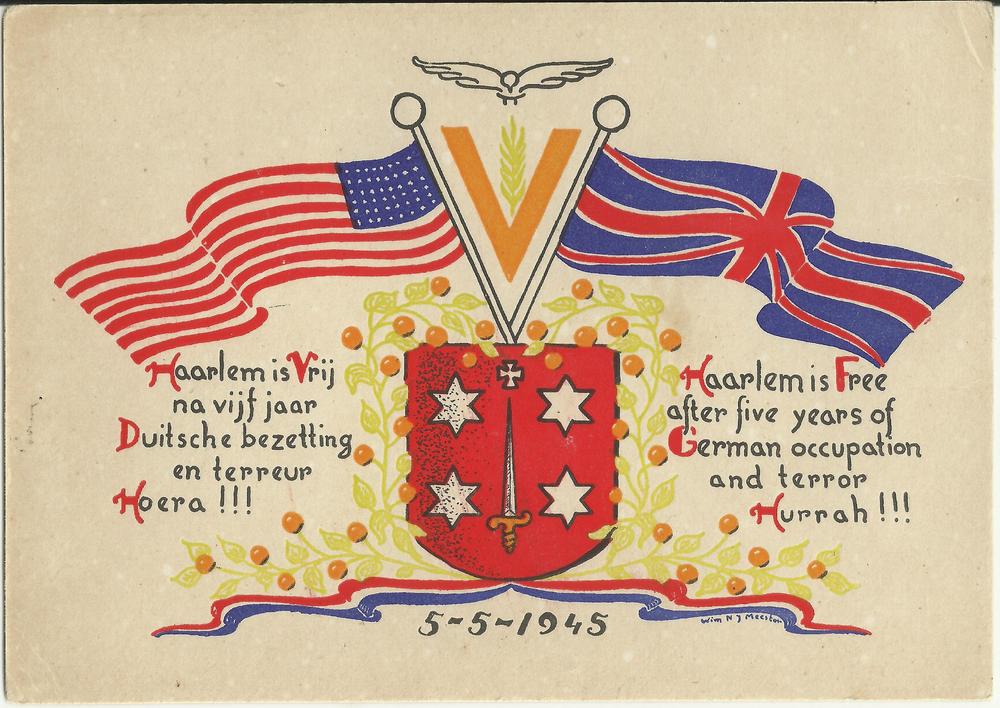 V
Haarlem is Vrij
na vijf jaar
Duitsche bezetting
en terreur
Hoera !!!
Haarlem is Free
after five years of
German occupation
and terror
Hurrah !!!
5-5-1945
Wim N J